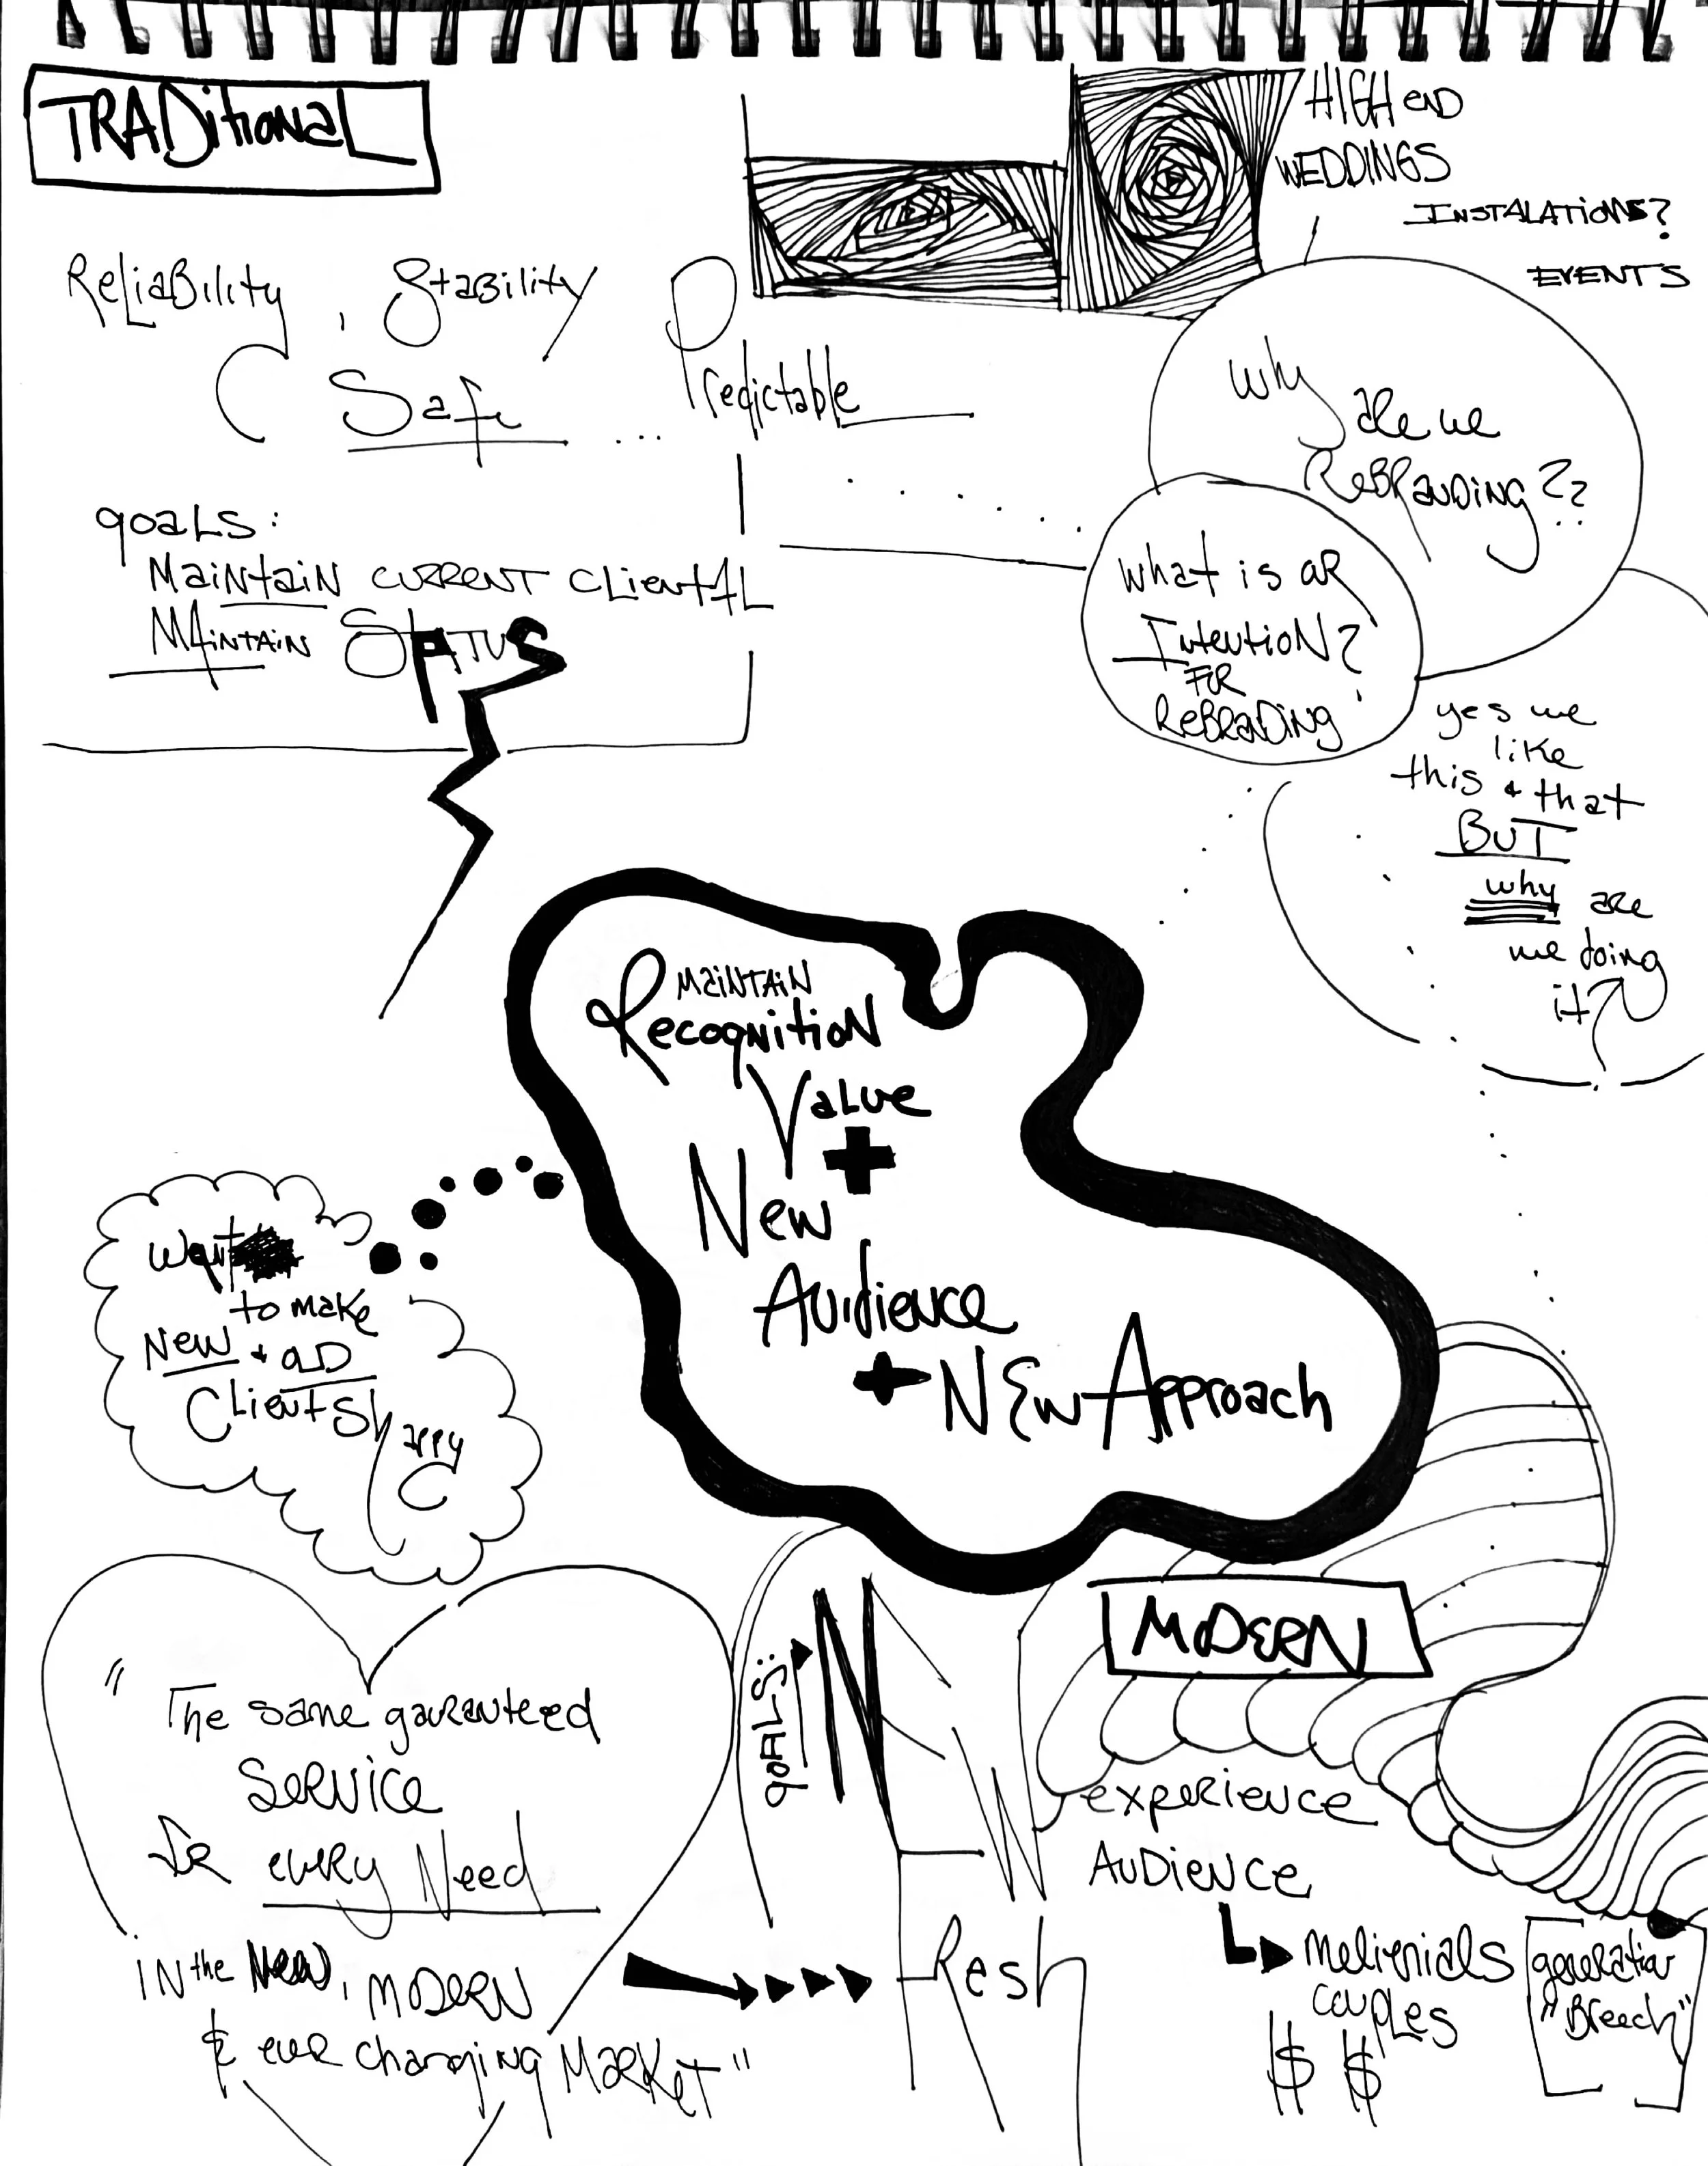 TRADitionaL
HIGH end
WEDDINGS
INSTALATIONS?
EVENTS
ReLiaBility, Stability
Safe ... Predictable
Why are we
ReBRanDiNG??
What is oR
IntentioN?
FoR
ReBRaDiNg
yes we
like
this + that
BUT
why are
we doing
it
goaLS:
MaiNtaiN CURRENT CLientAL
MAiNTAiN STATUS
MaiNTAiN
RecogNitioN
VaLue
+
New
Audience
+ NEw Approach
Want
to make
New + oLD
Clients happy
" The same gauranteed
SeRVice
foR eveRy Need
iN the New, MODERN
& eveR changiNg MaRKet"
goALS:
New
Fresh
MODERN
expeRieNce
AuDieNce
melinnials
couples
$ $
generation
"Breech"